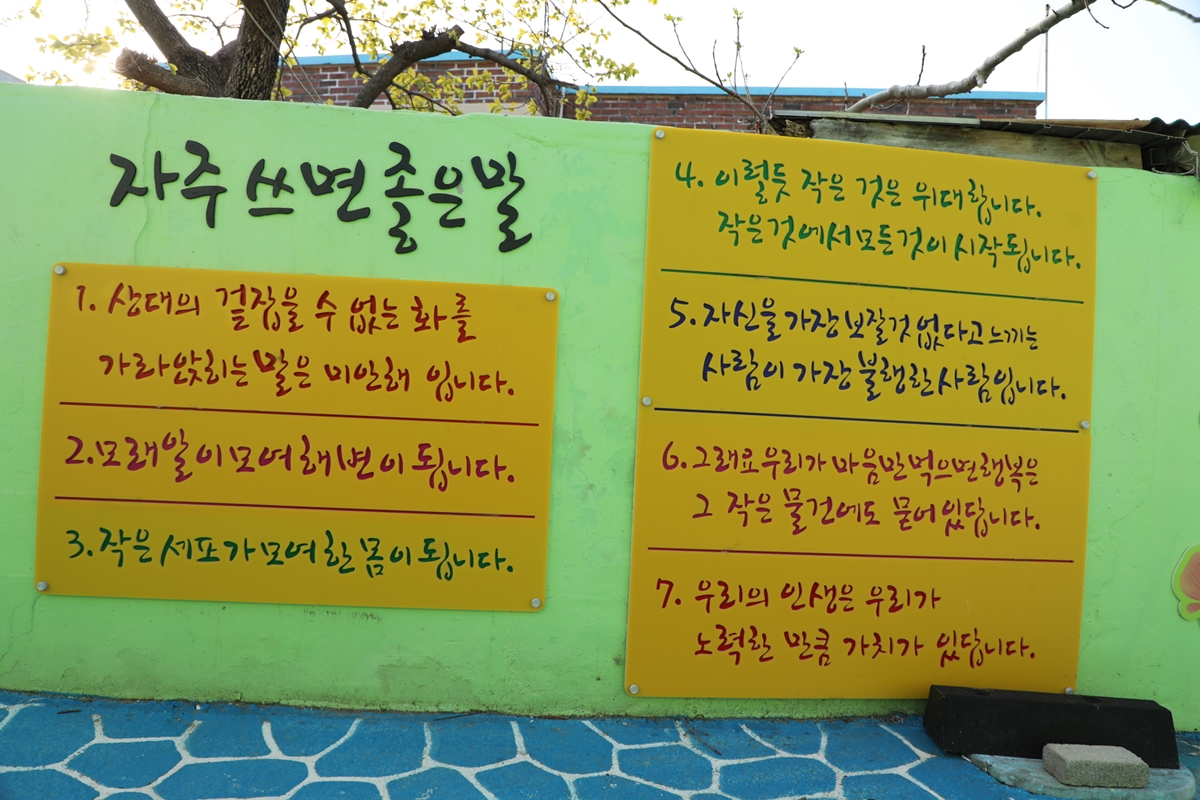 자주 쓰면 좋은 말
1. 상대의 걷잡을 수 없는 화를
가라앉히는 말은 미안해 입니다.
2. 모래알이 모여 해변이 됩니다.
3. 작은 세포가 모여 한 몸이 됩니다.
4. 이렇듯 작은 것은 위대합니다.
작은것에서 모든것이 시작됩니다.
5. 자신을 가장 보잘것 없다고 느끼는
사람이 가장 불행한 사람입니다.
6. 그래요 우리가 마음만 먹으면 행복은
그 작은 물건에도 묻어 있답니다.
7. 우리의 인생은 우리가
노력한 만큼 가치가 있답니다.